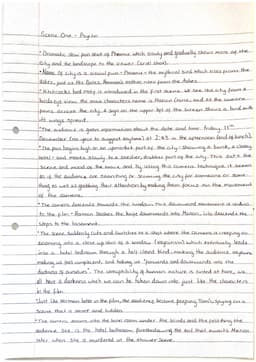 Scene One - Psycho
• Dramatic slow pan shot of Phoenix which slowly and gradually shows more of the
city and the landscape to the viewer (aerial shot).
• Name of city is a visual pun - Phoenix = the mythical bird which rises from the
ashes, just as Mrs Bates, Norman's mother, rises from the ashes.
• Hitchcocks bird motif is introduced in the first scene. We see the city from a
birds eye view, the main characters name is Marion Crane, and as the camera
pans across the city, a sign on the upper left of the screen shows a bird with
its wings spread.
• The audience is given information about the date and time: Friday 11th
December (two days to suggest daytime) at 2:43 in the afternoon (end of lunch).
• The pan begins high on an upmarket part of the city - showing a bank, a classy
hotel - and moves slowly to a seedier, shabbier part of the city. This sets the
scene and mood of the movie and by using this camera technique it seems
as if the audience are searching or scanning the city for someone or some-
thing as well as grabbing their attention by making them focus on the movement
of the camera.
• The camera descends towards the window. This downward movement is vital
to the film - Norman slashes the knife downwards into Marion, Lila descends the
steps to the basement.
• The scene suddenly cuts and switches to a shot where the camera is creeping or
zooming into a close up shot of a window (voyeurism) which eventually leads
into a hotel bedroom through a half closed blind, making the audience voyeurs
making us feel complicit, and taking us "forwards and downwards into the
darkness of ourselves". The corruptibility of human nature is hinted at here, we
all have a darkness which we can be taken down into just like the characters
in the film.
• Just like Norman later in the film, the audience become peeping Toms, spying on a
scene that is secret and hidden.
• The camera zooms into the dark room under the blinds and the first thing the
audience see is the hotel bathroom, foreshadowing the evil that awaits Marion
later when she is murdered in the shower scene.